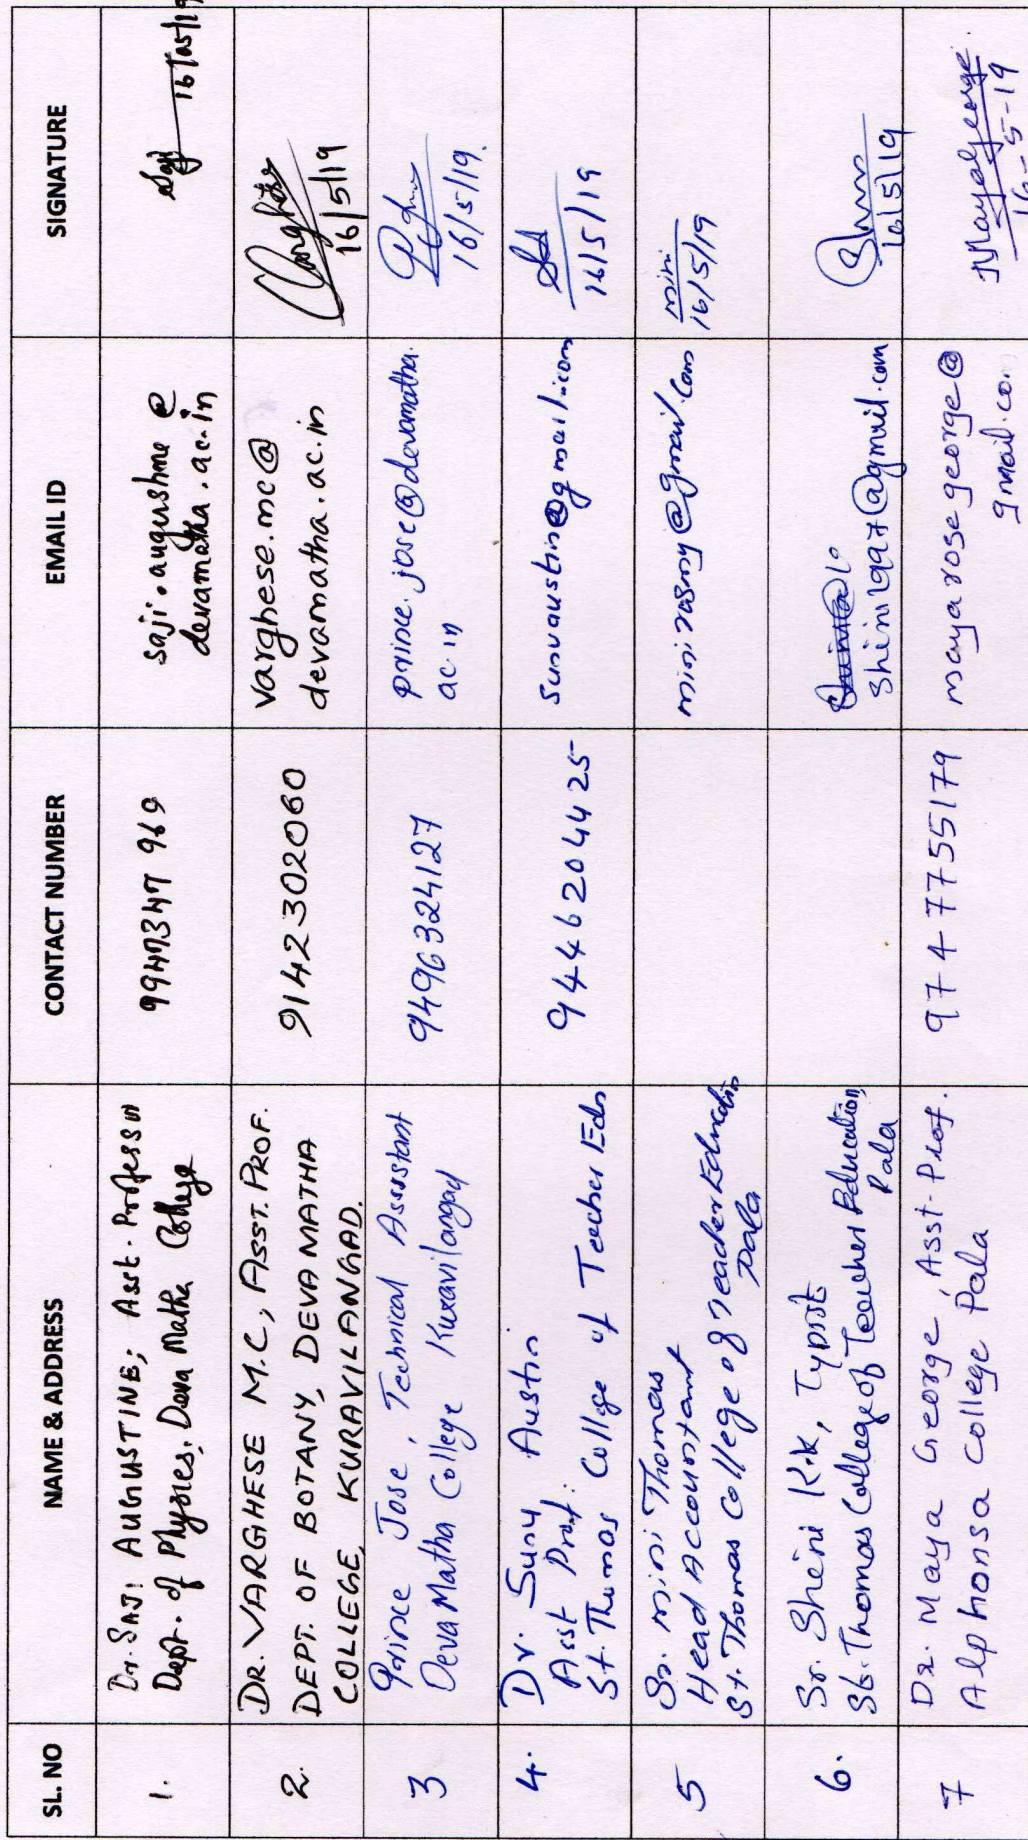 SL. NO NAME & ADDRESS CONTACT NUMBER EMAIL ID SIGNATURE
1. Dr. SAJI AUGUSTINE; Asst. Professor
Dept. of Physics, Deva Matha College
9947347 969
saji.augustine@
devamatha.ac.in
Saji 16/05/19
2. DR. VARGHESE M.C, ASST. PROF.
DEPT. OF BOTANY, DEVA MATHA
COLLEGE, KURAVILANGAD.
9142302060
varghese.mc@
devamatha.ac.in
Varghese
16/5/19
3 Prince Jose, Technical Assistant
Deva Matha College Kuravilangad
9496324127
prince.jose@devamatha.
ac.in
16/5/19.
4. Dr. Suny Austin
Asst Prof:
St. Thomas College of Teacher Edn
9446204425
Sunvaustin@gmail.com
16/5/19
5 Sr. Mini Thomas
Head Accountant
St. Thomas College of Teacher Education
Pala
minirosmy@gmail.com
mini
16/5/19
6. Sr. Sheni K.K, Typist
St. Thomas College of Teacher Education,
Pala
Sheni1997@gmail.com
16/5/19
7 Dr. Maya George, Asst. Prof.
Alphonsa College Pala
9747755179
mayarosegeorge@
gmail.co
Mayageorge.
16-5-19